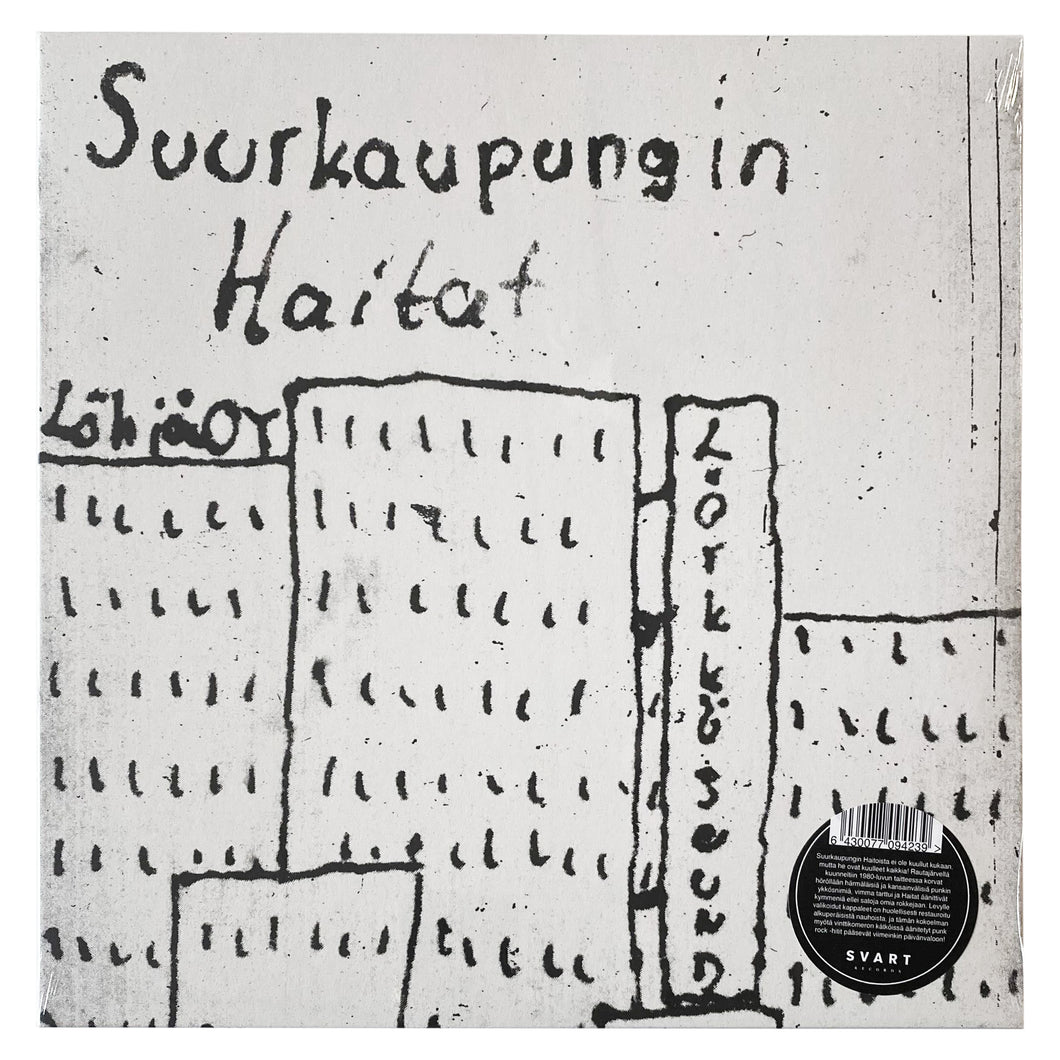 Suurkaupungin
Haitat
Löhjä OY
Lörkkö
6 430077 094239 >
Suurkaupungin Haitoista ei ole kuullut kukaan,
mutta he ovat kuulleet kaikkia! Rautajärvellä
kuunneltiin 1980-luvun taitteessa korvat
höröllään härmäläisiä ja kansainvälisiä punkin
ykkösnimiä, vimma tarttui ja Haitat äänittivät
kymmeniä ellei satoja omia rokkejaan. Levylle
valikoidut kappaleet on huolellisesti restauroitu
alkuperäisistä nauhoista, ja tämän kokoelman
myötä vinttikomeron kätköissä äänitetyt punk
rock -hitit pääsevät viimeinkin päivänvaloon!
SVART
RECORDS